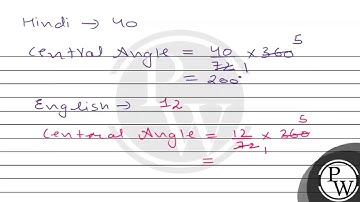 Hindi → 40
Central Angle = 40/72 × 360 5
1
= 200°
English → 12
Centeral Angle = 12/72 × 360 5
1
=
P
W
P
W